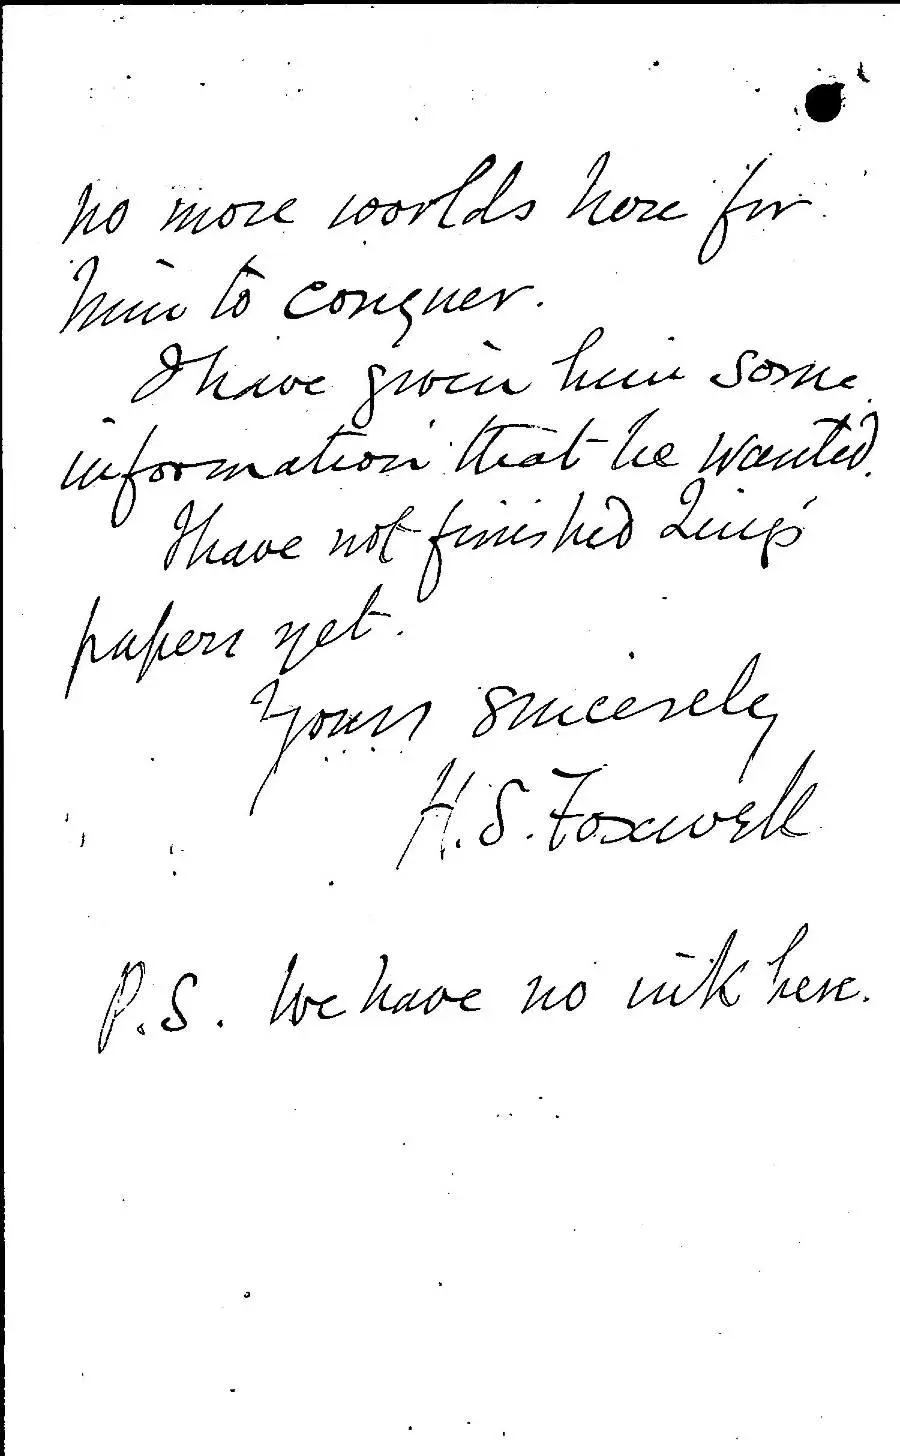 no more worlds here for
him to conquer.
I have given him some
information that he wanted.
I have not finished
papers yet.
Yours sincerely
H. S. Foxwell
P.S. We have no ink here.